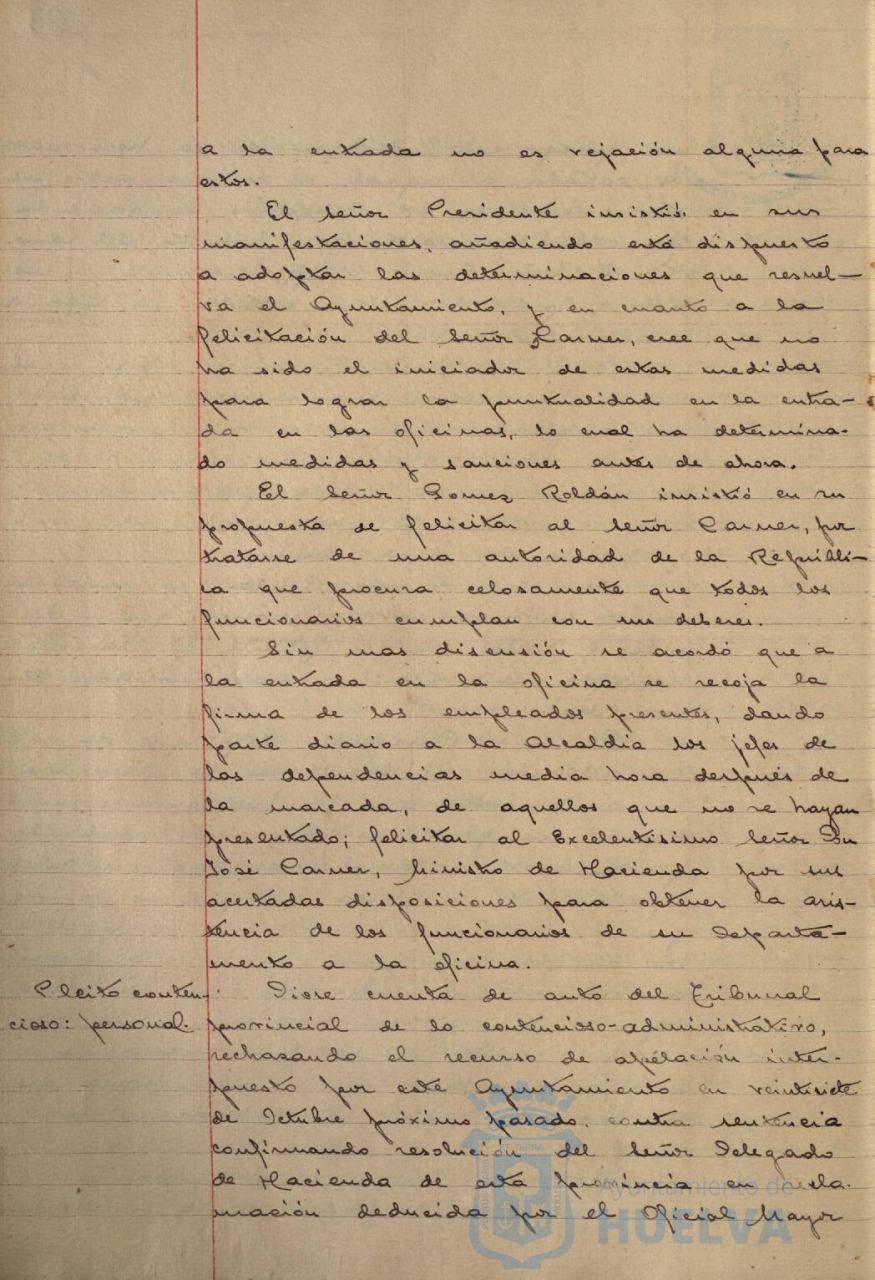 a la entrada no es vejación alguna para
estos.
El Señor Presidente insistió en sus
manifestaciones, añadiendo está dispuesto
a adoptar las determinaciones que resuel-
va el Ayuntamiento, y en cuanto a la
felicitación del Señor Carner, cree que no
ha sido el iniciador de estas medidas
para lograr la puntualidad en la entra-
da en las oficinas, lo cual ha determina-
do medidas y sanciones antes de ahora.
El Señor Gomez Roldán insistió en su
propuesta de felicitar al Señor Carner, por
tratarse de una autoridad de la Repúbli-
ca que procura celosamente que todos los
funcionarios cumplan con sus deberes.
Sin mas discusión se acordó que a
la entrada en la oficina se recoja la
firma de los empleados presentes, dando
parte diario a la Alcaldia los jefes de
las dependencias media hora después de
la marcada, de aquellos que no se hayan
presentado; felicitar al Excelentísimo Señor Don
José Carner, Ministro de Hacienda por sus
acertadas disposiciones para obtener la asis-
tencia de los funcionarios de su Departa-
mento a la oficina.
Pleito conten-
cioso: personal.
Diose cuenta de auto del Tribunal
provincial de lo contencioso-administrativo,
rechazando el recurso de apelación inter-
puesto por este Ayuntamiento en veintisiete
de Octubre próximo pasado contra sentencia
confirmando resolución del Señor Delegado
de Hacienda de esta provincia en recla-
mación deducida por el Oficial Mayor
Ayuntamiento de
HUELVA